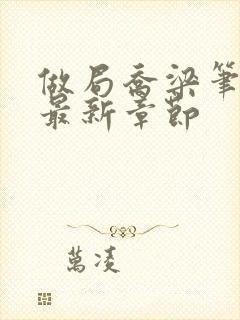 做局喬梁筆
最新章節
萬凌